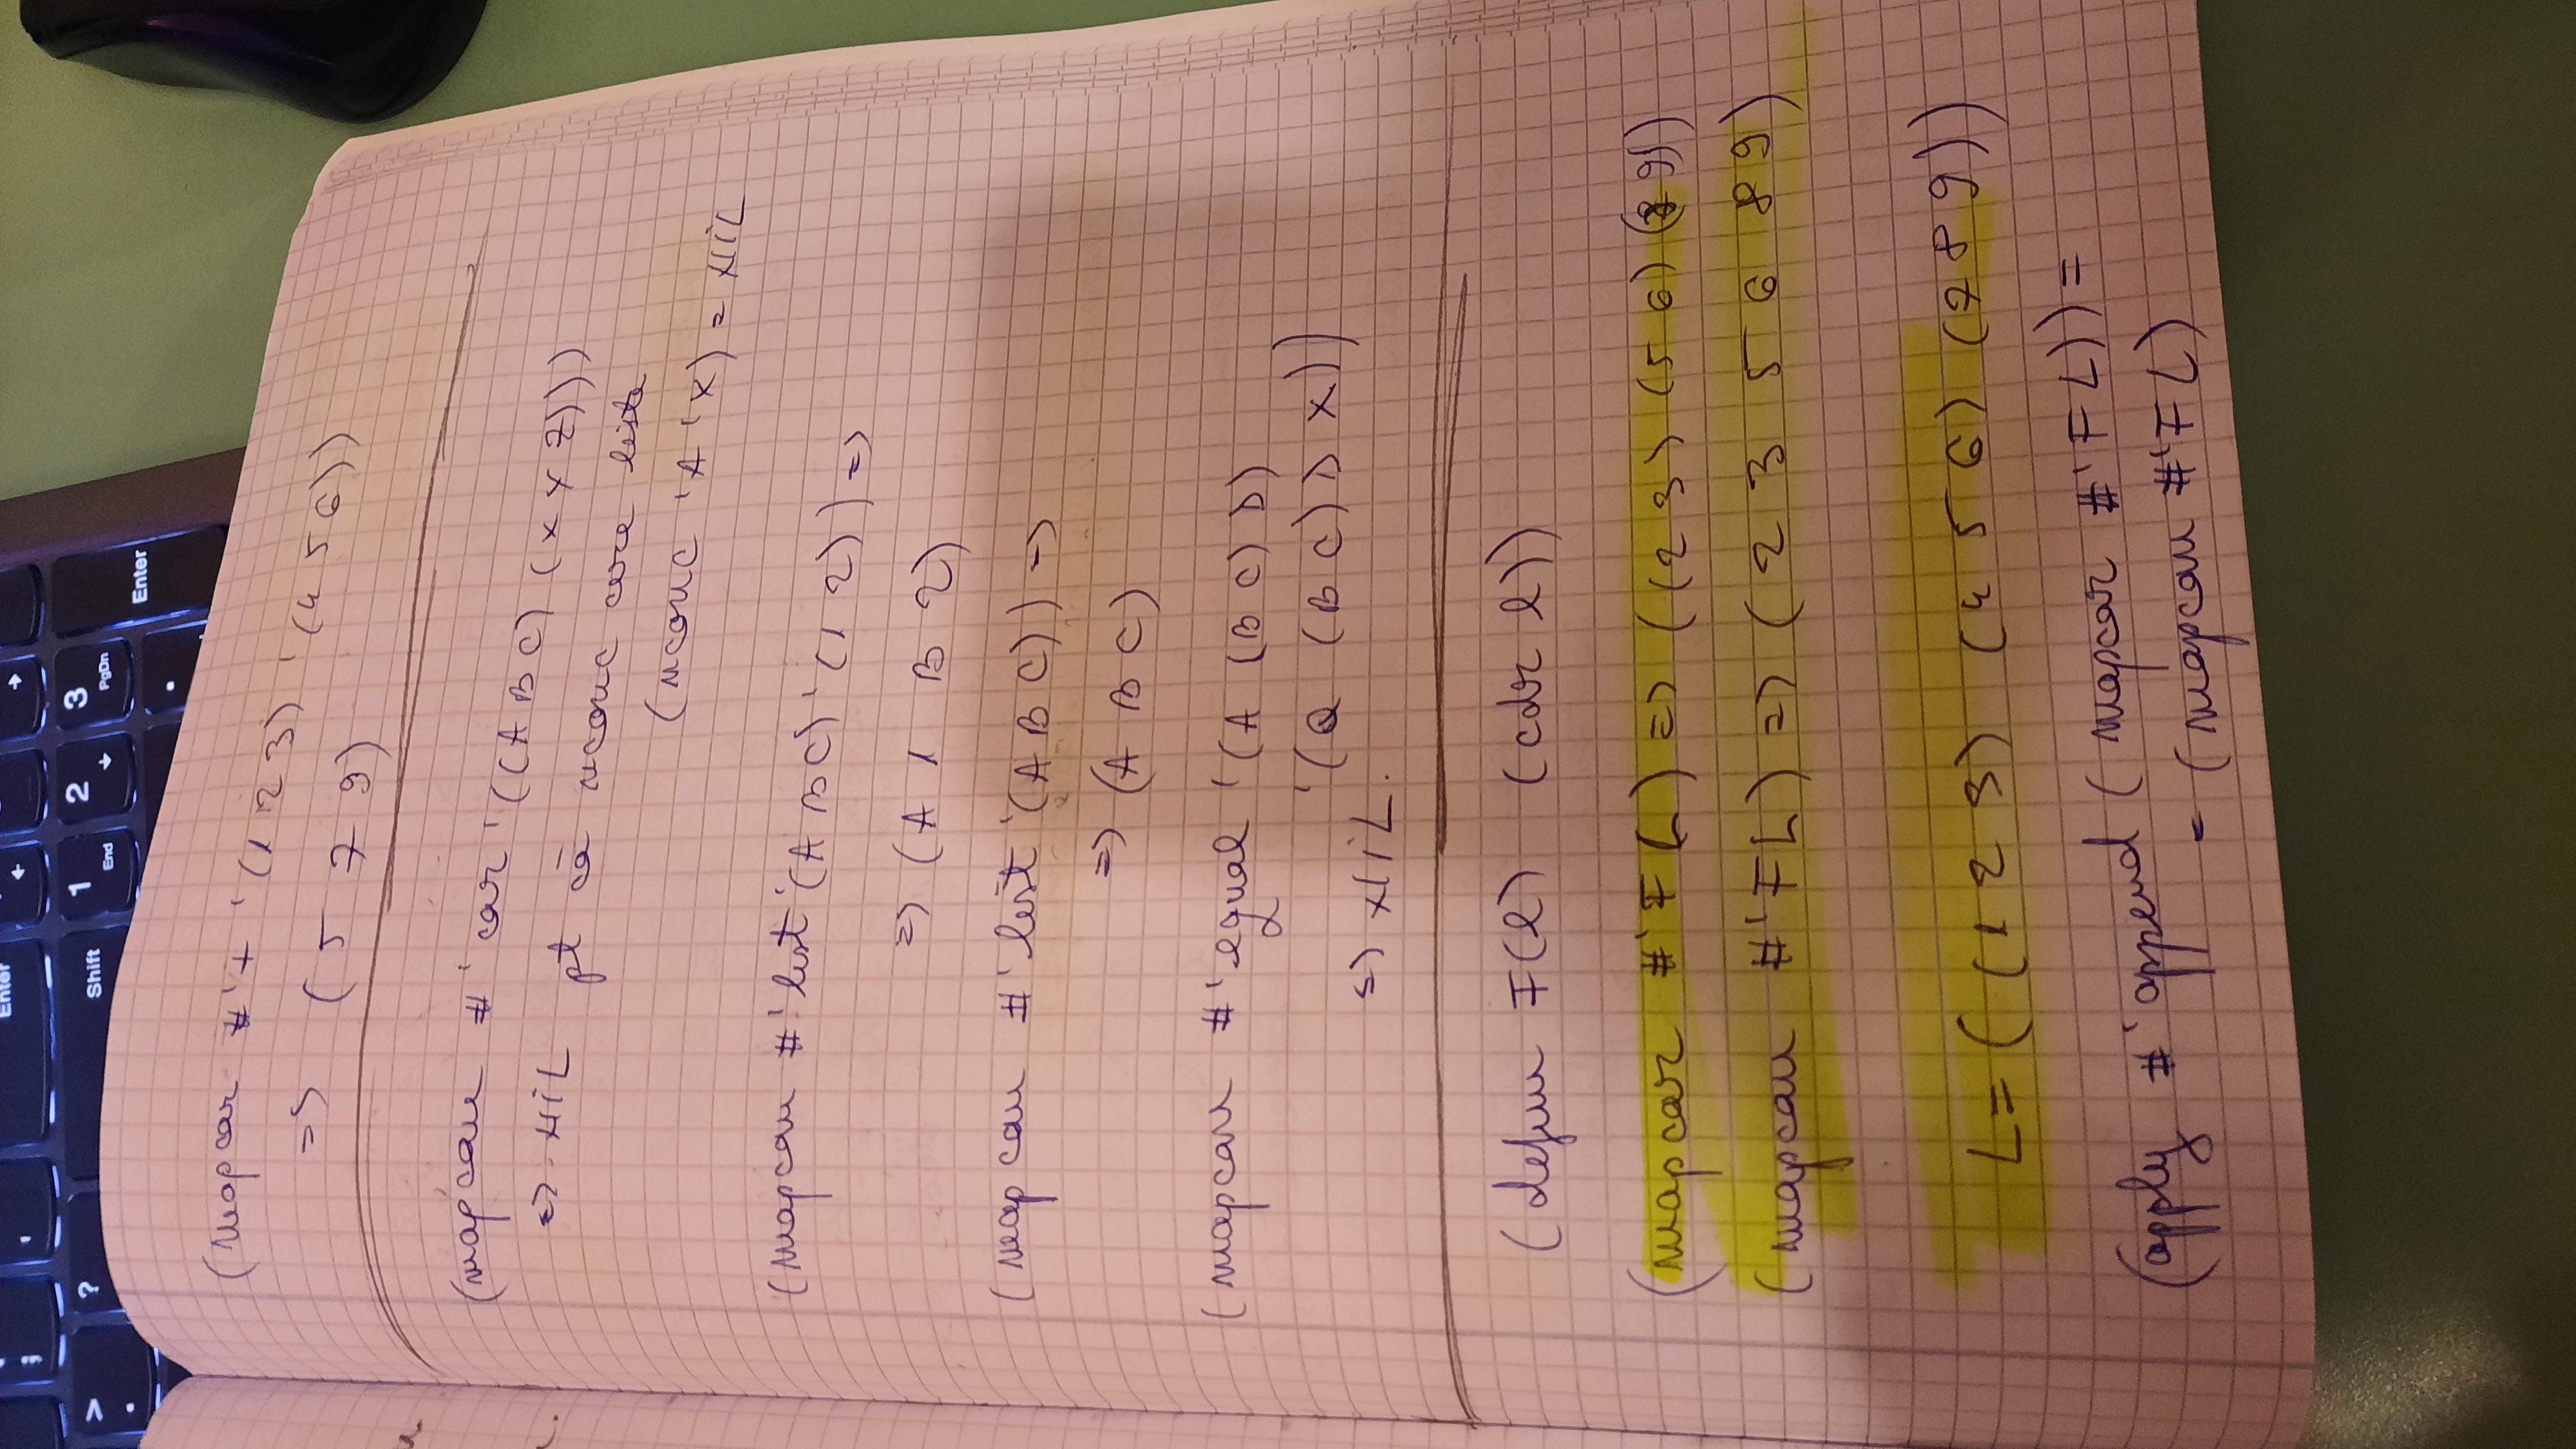 Enter
← →
> ? Shift 1 2 3
. End ↓ PgDn
Enter
.
(mapcar #'+ '(1 2 3) '(4 5 6))
=> (5 7 9)
(mapcan #'car '((A B C) (X Y Z)))
=> NIL pt că nconc cere liste
(nconc 'A 'X) = NIL
(mapcan #'list '(A B C) '(1 2)) =>
=> (A 1 B 2)
(mapcan #'list '(A B C)) =>
=> (A B C)
(mapcan #'equal '(A (B C) D)
'(Q (B C) D X))
=> NIL.
(defun F(l) (cdr l))
(mapcar #'F L) => ((2 3) (5 6) (8 9))
(mapcan #'F L) => (2 3 5 6 8 9)
L = ((1 2 3) (4 5 6) (7 8 9))
(apply #'append (mapcar #'F L)) =
= (mapcan #'F L)